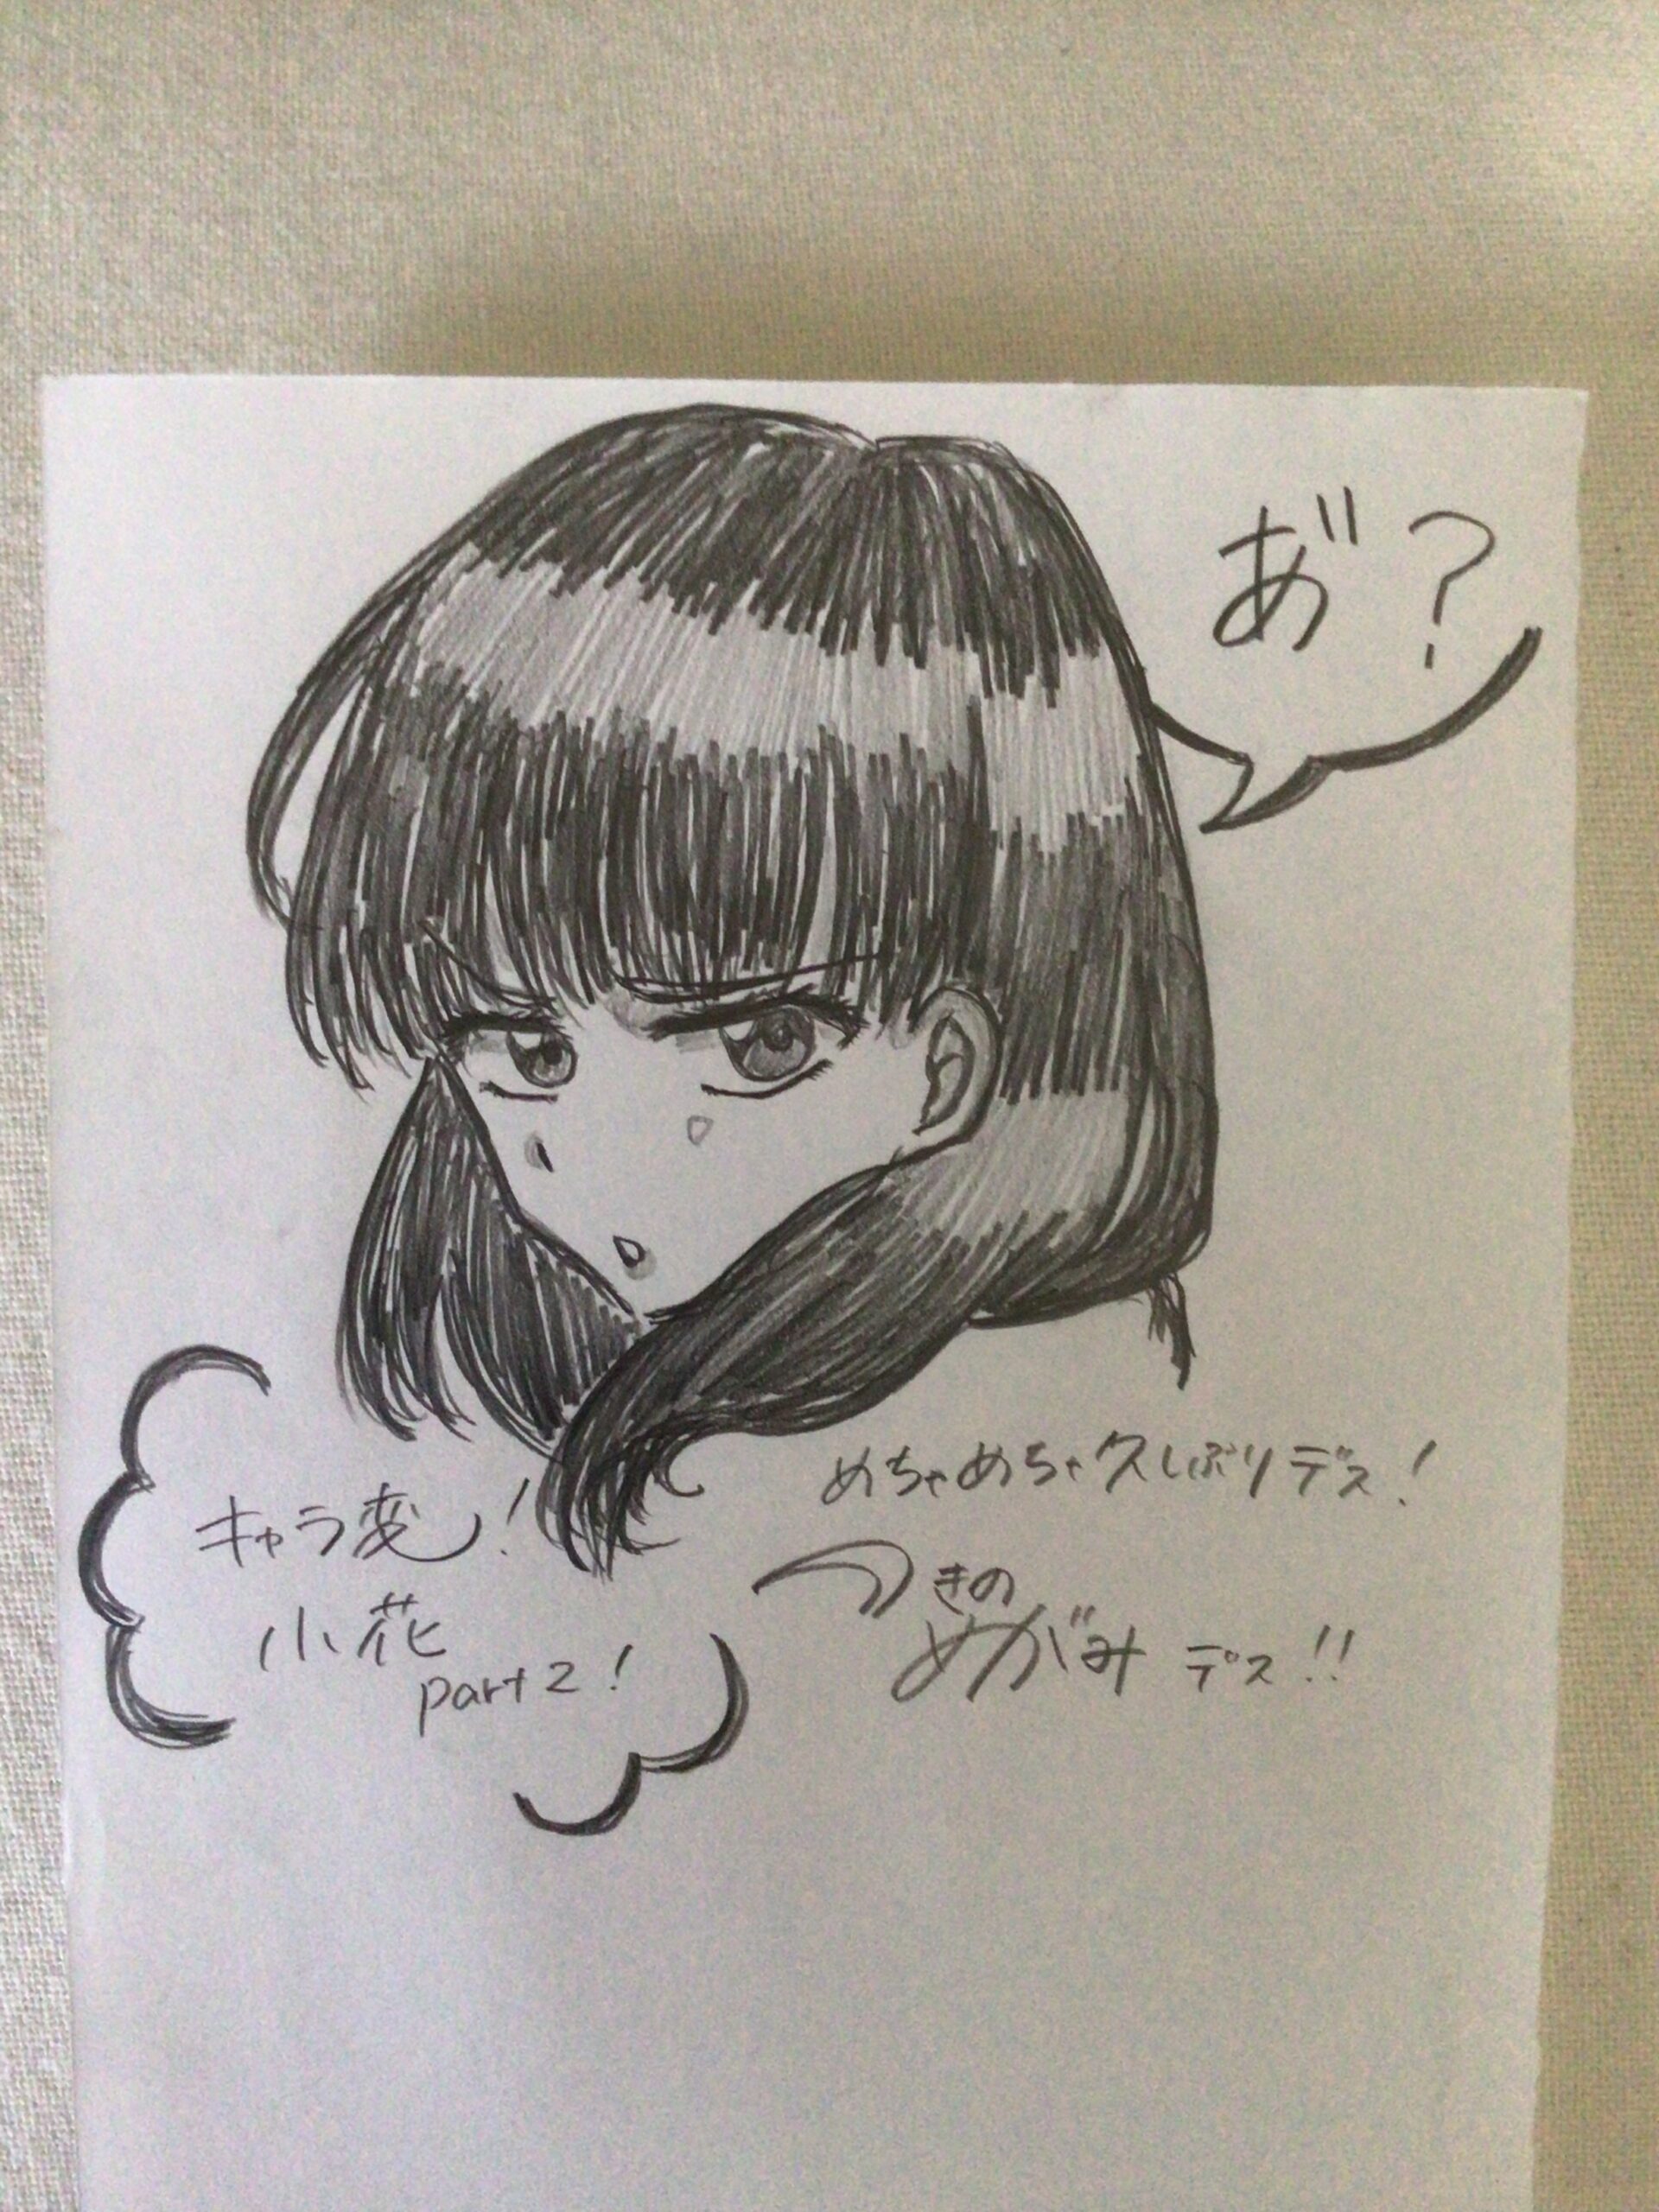 あ゛?
めちゃめちゃ久しぶりデス!
つきの
めがみ デス!!
キャラ変!
小花
part2!